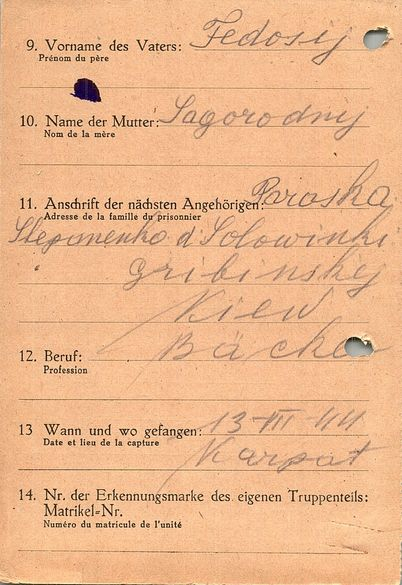 9. Vorname des Vaters: Fedosij
Prénom du père
10. Name der Mutter: Sagorodnij
Nom de la mère
11. Anschrift der nächsten Angehörigen: Paraska
Adresse de la famille du prisonnier
Stepanenko d Solowinki
Gribinskij
Kiew
12. Beruf: Bäcker
Profession
13 Wann und wo gefangen: 13-III-44
Date et lieu de la capture
Karpat
14. Nr. der Erkennungsmarke des eigenen Truppenteils:
Matrikel=Nr.
Numéro du matricule de l'unité